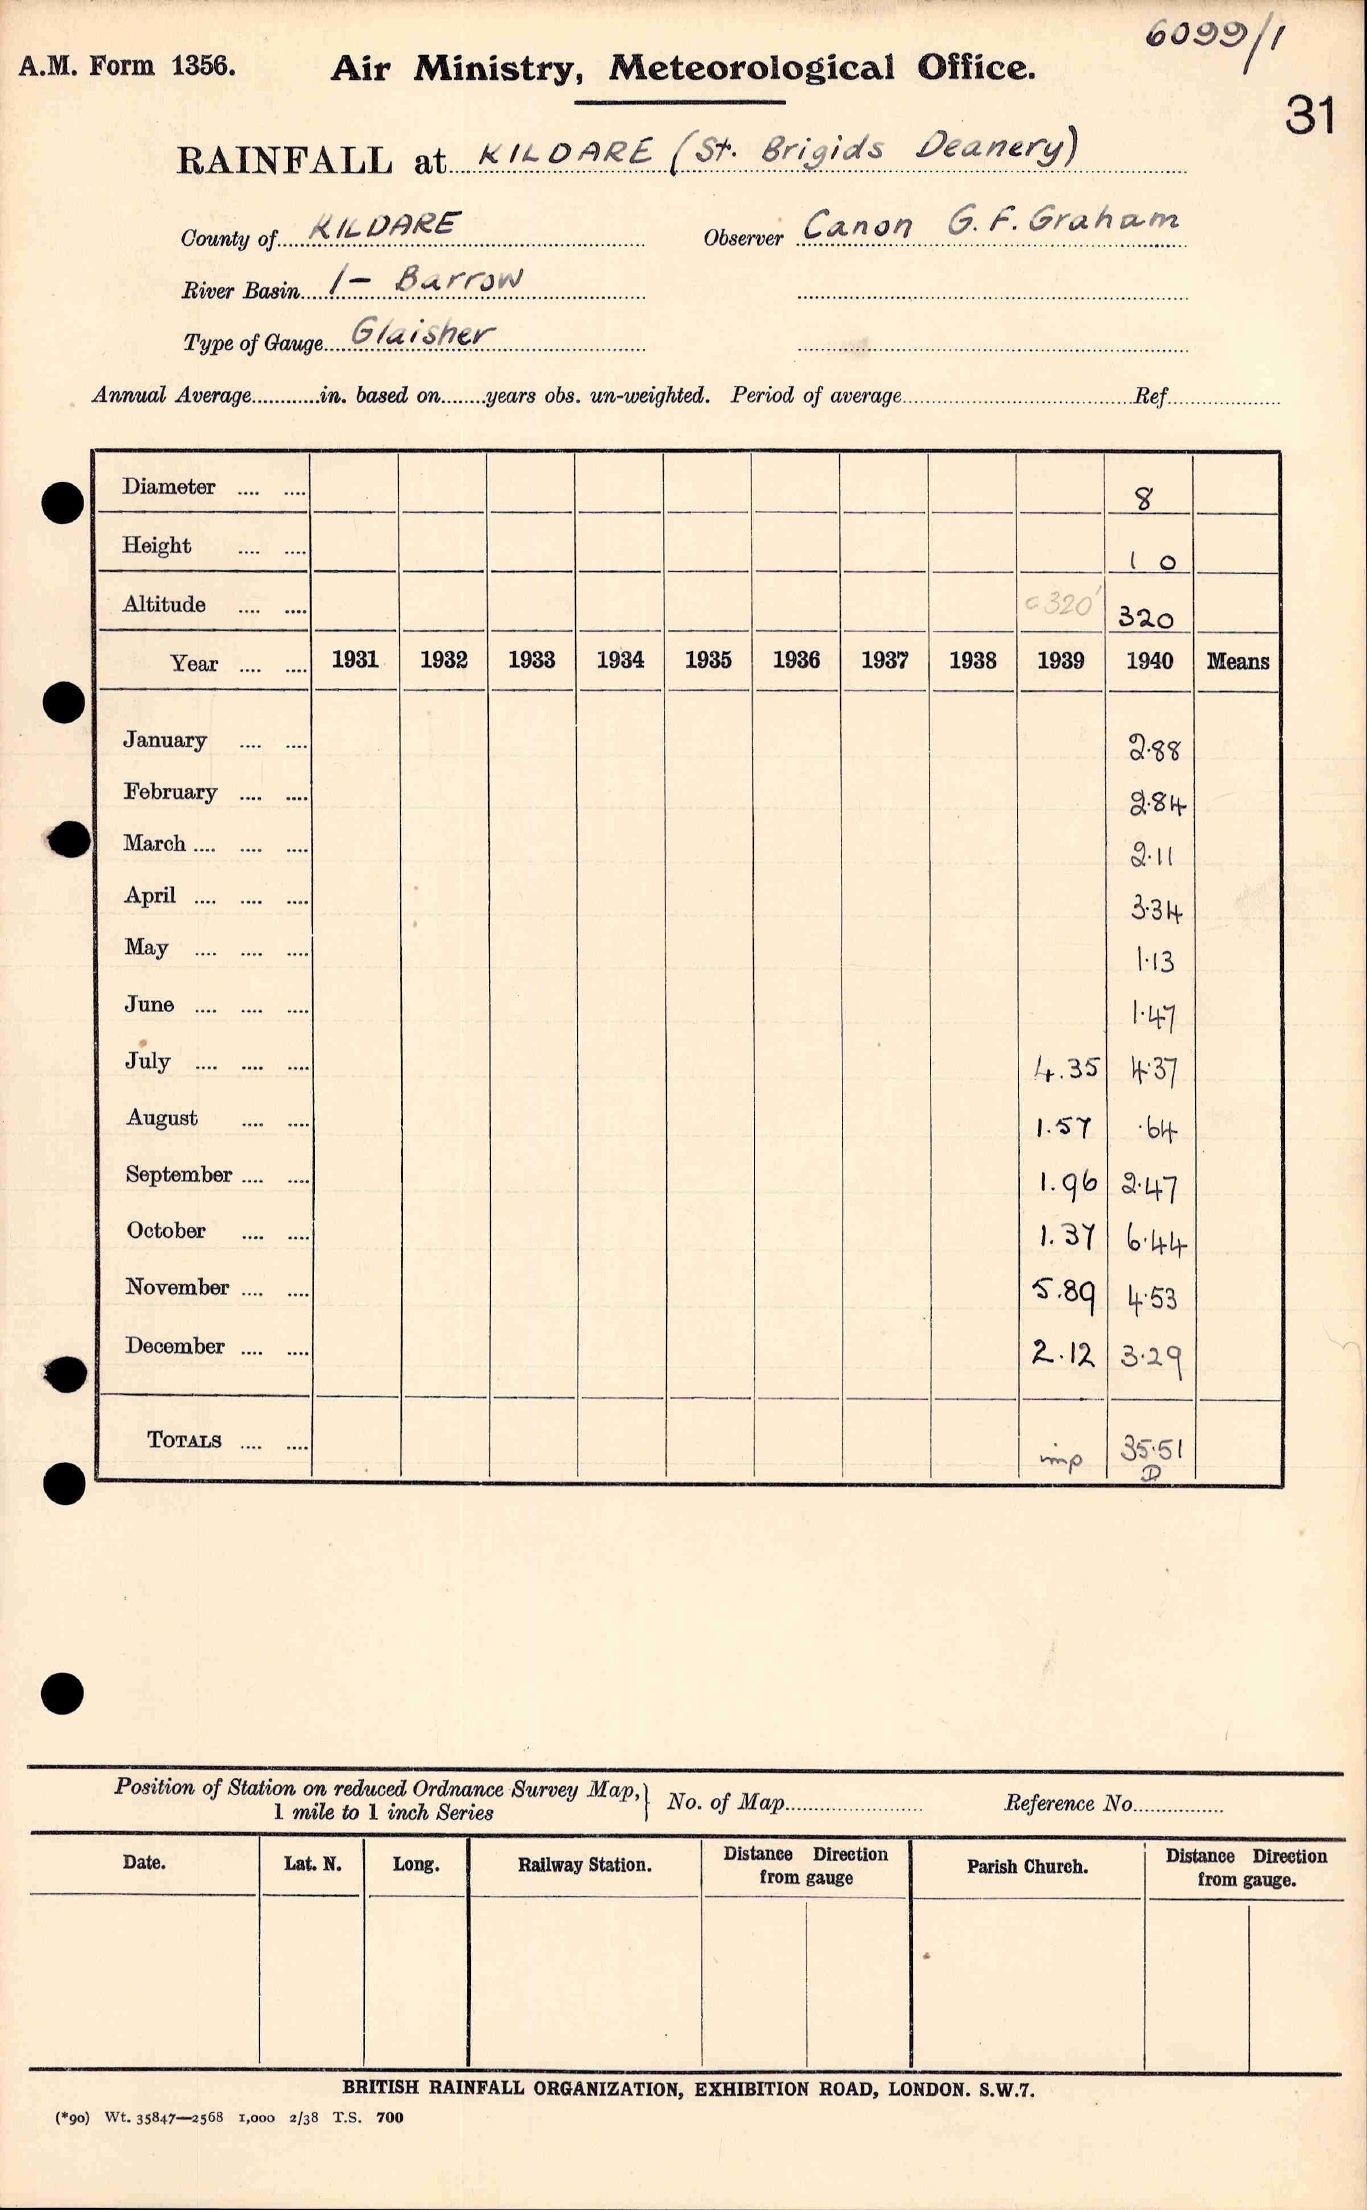 6099/1
A.M. Form 1356. Air Ministry, Meteorological Office.
31
RAINFALL at KILDARE (St. Brigids Deanery)
County of KILDARE Observer Canon G.F. Graham
River Basin 1- Barrow
Type of Gauge Glaisher
Annual Average............in. based on........years obs. un-weighted. Period of average........................................Ref....................
Diameter .... .... 8
Height .... .... 1 0
Altitude .... .... c320' 320
Year .... .... 1931 1932 1933 1934 1935 1936 1937 1938 1939 1940 Means
January .... .... 2.88
February .... .... 2.84
March .... .... .... 2.11
April .... .... .... 3.34
May .... .... .... 1.13
June .... .... .... 1.47
July .... .... .... 4.35 4.37
August .... .... 1.57 .64
September .... .... 1.96 2.47
October .... .... 1.37 6.44
November .... .... 5.89 4.53
December .... .... 2.12 3.29
TOTALS .... .... imp 35.51
D
Position of Station on reduced Ordnance Survey Map,} No. of Map........................ Reference No................
1 mile to 1 inch Series
Date. Lat. N. Long. Railway Station. Distance Direction from gauge Parish Church. Distance Direction from gauge.
BRITISH RAINFALL ORGANIZATION, EXHIBITION ROAD, LONDON. S.W.7.
(*90) Wt. 35847—2568 1,000 2/38 T.S. 700